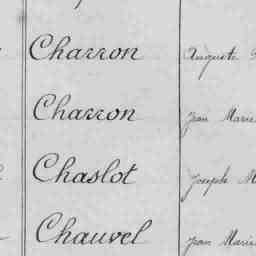 Charron Auguste
Charron Jean Marie
Chaslot Joseph M
Chauvel Jean Marie